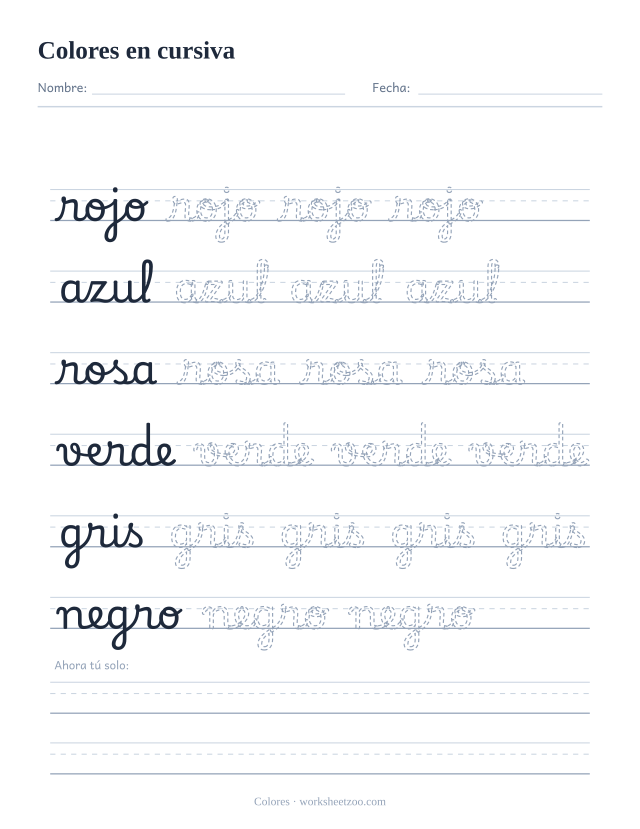 Colores en cursiva
Nombre: Fecha:
rojo rojo rojo rojo
azul azul azul azul
rosa rosa rosa rosa
verde verde verde verde
gris gris gris gris gris
negro negro negro
Ahora tú solo:
Colores · worksheetzoo.com